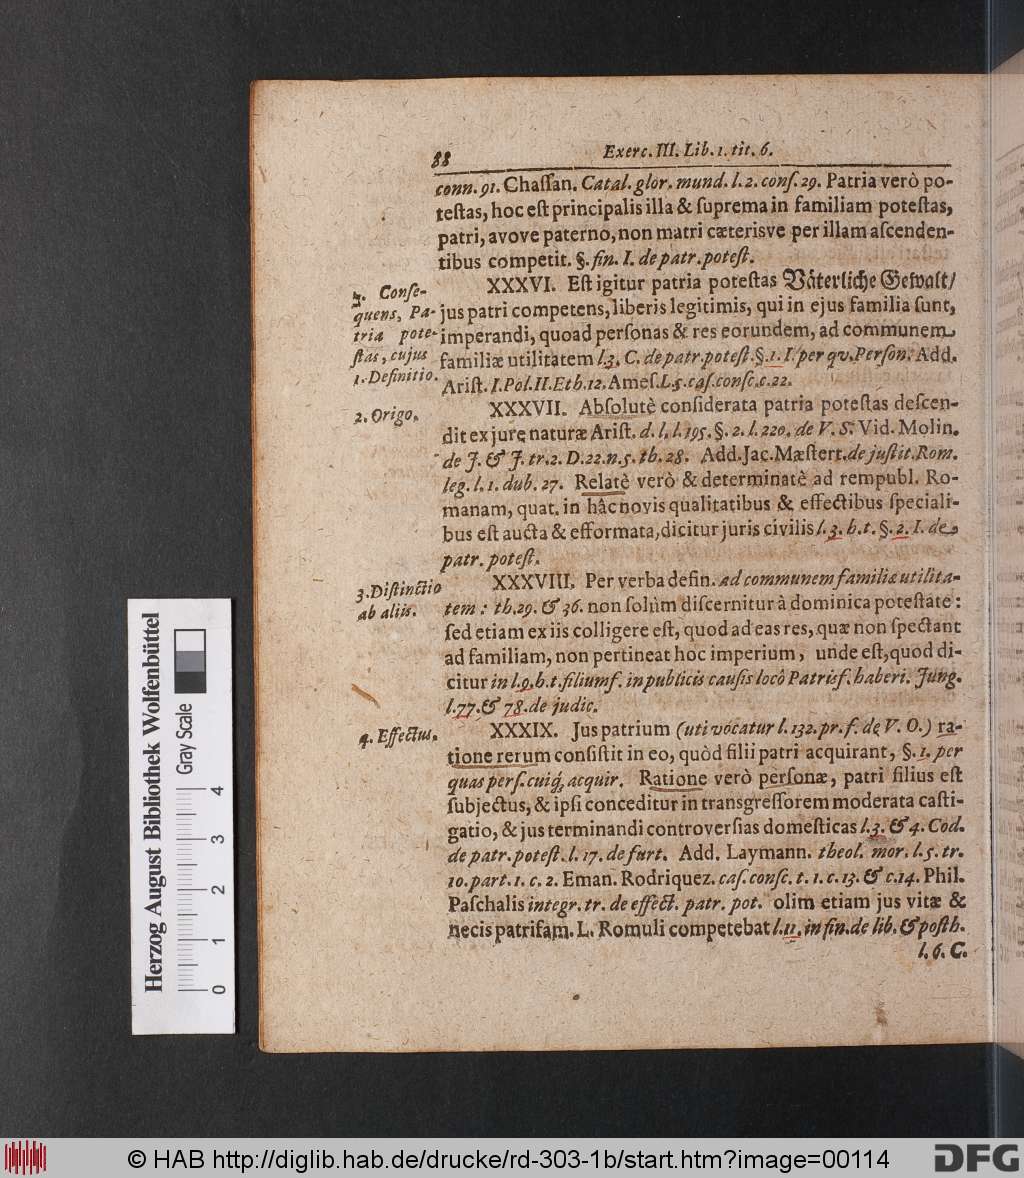 88 Exerc. III. Lib. 1. tit. 6.
conn. 91. Chaſſan. Catal. glor. mund. l. 2. conſ. 29. Patria verò po-
teſtas, hoc eſt principalis illa & ſuprema in familiam poteſtas,
patri, avove paterno, non matri cæterisve per illam aſcenden-
tibus competit. §. fin. I. de patr. poteſt.
3. Conſe-
quens, Pa-
tria pote-
ſtas, cujus
1. Definitio.
XXXVI. Eſt igitur patria poteſtas Väterliche Gewalt/
jus patri competens, liberis legitimis, qui in ejus familia ſunt,
imperandi, quoad perſonas & res eorundem, ad communem
familiæ utilitatem l. 3. C. de patr. poteſt. §. 1. I. per qv. Perſon. Add.
Ariſt. I. Pol. II. Eth. 12. Ameſ. L. 5. caſ. conſc. c. 22.
2. Origo.
XXXVII. Abſolutè conſiderata patria poteſtas deſcen-
dit ex jure naturæ Ariſt. d. l. l. 195. §. 2. l. 220. de V. S. Vid. Molin.
de J. & J. tr. 2. D. 22. n. 5. th. 28. Add. Jac. Mæſtert. de juſtit. Rom.
leg. l. 1. dub. 27. Relatè verò & determinatè ad rempubl. Ro-
manam, quat. in hâc novis qualitatibus & effectibus ſpeciali-
bus eſt aucta & efformata, dicitur juris civilis l. 3. h. t. §. 2. I. de
patr. poteſt.
3. Diſtinctio
ab aliis.
XXXVIII. Per verba defin. ad communem familiæ utilita-
tem: th. 29. & 36. non ſolùm diſcernitur à dominica poteſtate:
ſed etiam ex iis colligere eſt, quod ad eas res, quæ non ſpectant
ad familiam, non pertineat hoc imperium, unde eſt, quod di-
citur in l. 9. h. t. filiumf. in publicis cauſis locô Patrisf. haberi. Jung.
l. 77. & 78. de judic.
4. Effectus.
XXXIX. Jus patrium (uti vocatur l. 132. pr. f. de V. O.) ra-
tione rerum conſiſtit in eo, quòd filii patri acquirant, §. 1. per
quas perſ. cuiq́; acquir. Ratione verò perſonæ, patri filius eſt
ſubjectus, & ipſi conceditur in transgreſſorem moderata caſti-
gatio, & jus terminandi controverſias domeſticas l. 3. & 4. Cod.
de patr. poteſt. l. 17. de furt. Add. Laymann. theol. mor. l. 5. tr.
10. part. 1. c. 2. Eman. Rodriquez. caſ. conſc. t. 1. c. 13. & c. 14. Phil.
Paſchalis integr. tr. de effect. patr. pot. olim etiam jus vitæ &
necis patrifam. L. Romuli competebat l. 11. in fin. de lib. & poſth.
l. 6. C.
Herzog August Bibliothek Wolfenbüttel
Gray Scale
0 1 2 3 4
© HAB http://diglib.hab.de/drucke/rd-303-1b/start.htm?image=00114
DFG